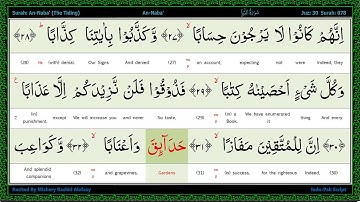 Surah: An-Naba' (The Tiding)
An-Naba'
Juz: 30 Surah: 078
إِنَّهُمْ كَانُوْا لَا يَرْجُوْنَ حِسَابًا ﴿٢٧﴾ وَّكَذَّبُوْا بِاٰيٰتِنَا كِذَّابًا ﴿٢٨﴾
(28) (with) denial. Our Signs And denied (27) an account, expecting not were Indeed, they
وَكُلَّ شَيْءٍ اَحْصَيْنٰهُ كِتٰبًا ﴿٢٩﴾ فَذُوْقُوْا فَلَنْ نَّزِيْدَكُمْ اِلَّا عَذَابًا
punishment. except We will increase you and never So taste, (29) (in) a Book. We have enumerated it thing And every
﴿٣٠﴾ اِنَّ لِلْمُتَّقِيْنَ مَفَازًا ﴿٣١﴾ حَدَآئِقَ وَاَعْنَابًا ﴿٣٢﴾ وَّكَوَاعِبَ
And splendid companions (32) and grapevines, Gardens (31) (is) success, for the righteous Indeed, (30)
Recited By Mishary Rashid Alafasy
Indo-Pak Script